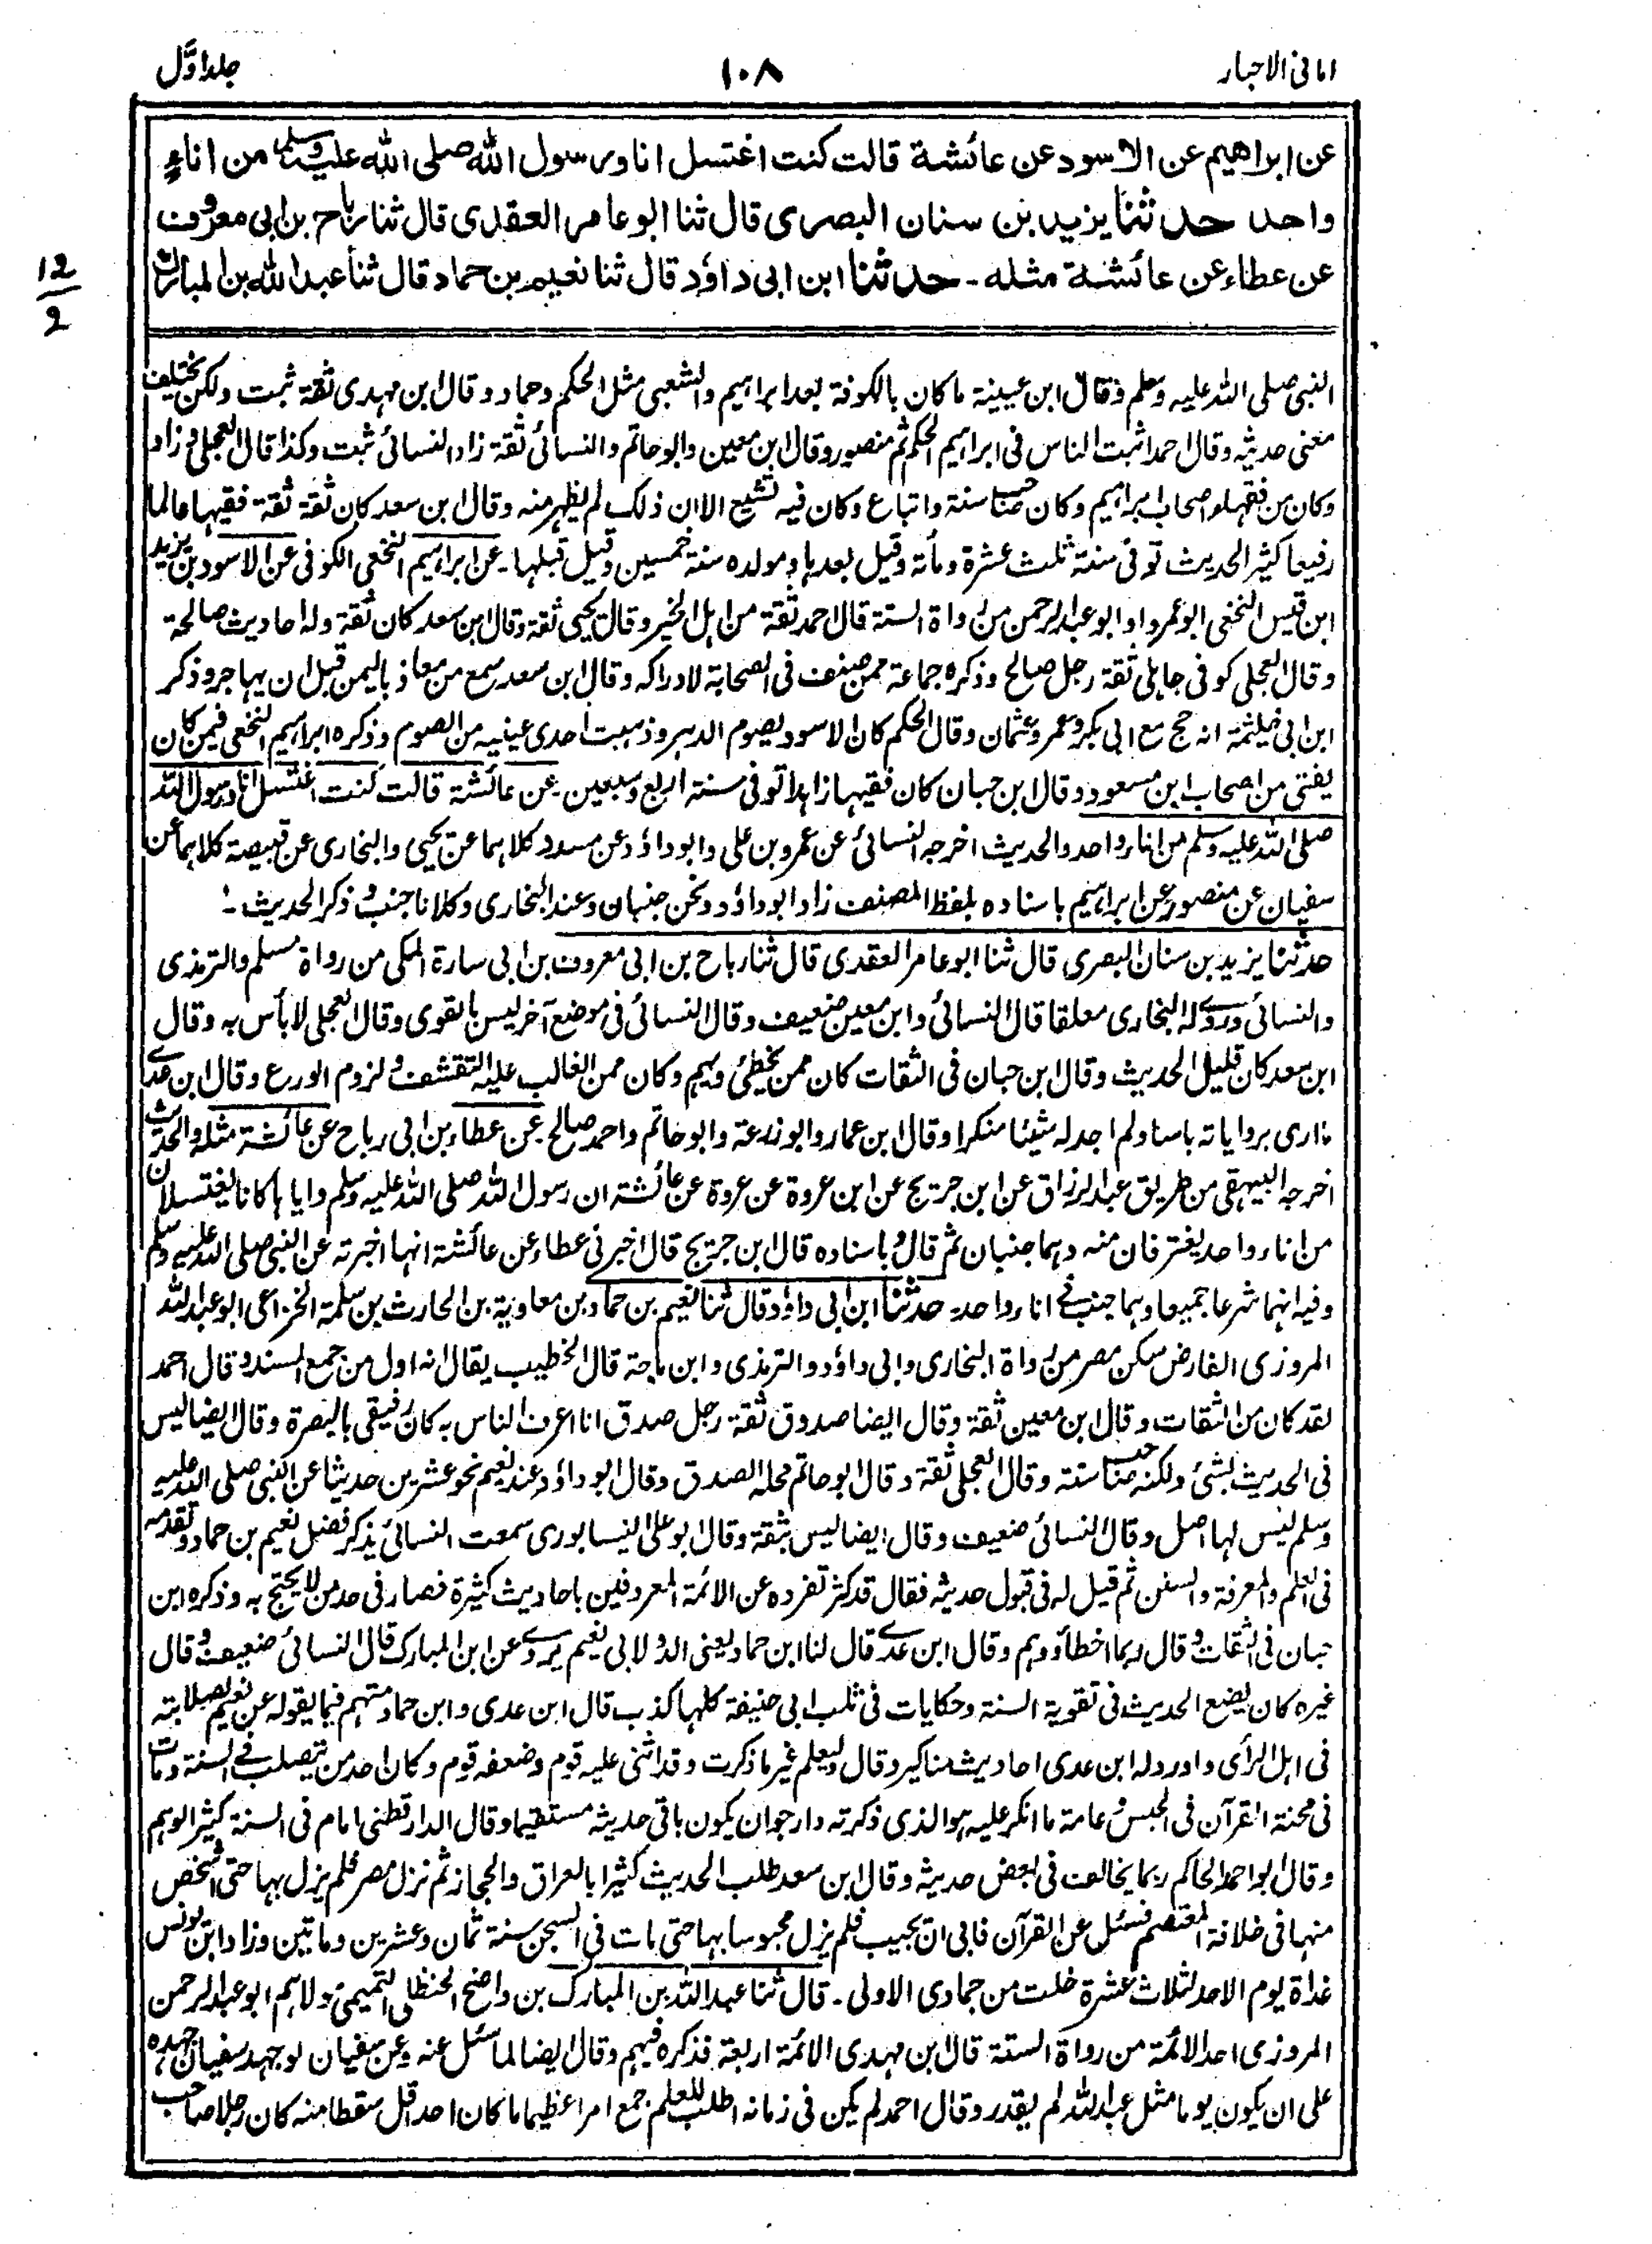 امانی الاحبار
۱۰۸
جلد اوّل
عن ابراهيم عن الاسود عن عائشة قالت كنت اغتسل انا ورسول الله صلى الله عليه وسلم من اناءٍ
واحد حدثنا يزيد بن سنان البصرى قال ثنا ابو عامر العقدى قال ثنا رباح بن ابى معروف
عن عطاء عن عائشة مثله - حدثنا ابن ابى داؤد قال ثنا نعيم بن حماد قال ثنا عبد الله بن المبارك
12
2
النبى صلى الله عليه وسلم وقال ابن عيينة ما كان بالكوفة بعد ابراهيم والشعبى مثل الحكم وحماد وقال ابن مهدى ثقة ثبت ولكن يختلف
معنى حديثه وقال احمد اثبت الناس فى ابراهيم الحكم ثم منصور وقال ابن معين وابو حاتم والنسائى ثقة زاد النسائى ثبت وكذا قال العجلى وزاد
وكان من فقهاء اصحاب ابراهيم وكان صاحب سنة واتباع وكان فيه تشيع الا ان ذلك لم يظهر منه وقال ابن سعد كان ثقة ثقة فقيها عالما
رفيعا كثير الحديث توفى سنة ثلث عشرة ومأة وقيل بعدها ومولده سنة خمسين وقيل قبلها - عن ابراهيم النخعى الكوفى عن الاسود بن يزيد
ابن قيس النخعى ابو عمرو او ابو عبد الرحمن من رواة الستة قال احمد ثقة من اهل الخير وقال يحيى ثقة وقال ابن سعد كان ثقة وله احاديث صالحة
وقال العجلى كوفى جاهلى ثقة رجل صالح وذكره جماعة ممن صنف فى الصحابة لادراكه وقال ابن سعد سمع من معاذ باليمن قبل ان يهاجر وذكر
ابن ابى خيثمة انه حج مع ابى بكر وعمر وعثمان وقال الحكم كان الاسود يصوم الدهر وذهبت احدى عينيه من الصوم وذكره ابراهيم النخعى فيمن كان
يفتى من اصحاب ابن مسعود وقال ابن حبان كان فقيها زاهدا توفى سنة اربع وسبعين - عن عائشة قالت كنت اغتسل انا ورسول الله
صلى الله عليه وسلم من اناء واحد والحديث اخرجه النسائى عن عمرو بن على وابو داؤد عن مسدد كلاهما عن يحيى والبخارى عن قبيصة كلاهما عن
سفيان عن منصور عن ابراهيم باسناده بلفظ المصنف زاد ابو داؤد ونحن جنبان وعند البخارى وكلانا جنب وذكر الحديث -
حدثنا يزيد بن سنان البصرى قال ثنا ابو عامر العقدى قال ثنا رباح بن ابى معروف بن ابى سارة المكى من رواة مسلم والترمذى
والنسائى وروى له البخارى معلقا قال النسائى وابن معين ضعيف وقال النسائى فى موضع آخر ليس بالقوى وقال العجلى لا بأس به وقال
ابن سعد كان قليل الحديث وقال ابن حبان فى الثقات كان ممن يخطئ ويهم وكان ممن الغالب عليه التقشف ولزوم الورع وقال ابن عدى
ما ارى بروايا ته باسا ولم اجد له شيئا منكرا وقال ابن عمار وابو زرعة وابو حاتم واحمد صالح - عن عطاء بن ابى رباح عن عائشة مثله والحديث
اخرجه البيهقى من طريق عبد الرزاق عن ابن جريج عن ابن عروة عن عروة عن عائشة ان رسول الله صلى الله عليه وسلم وايا ها كانا يغتسلان
من اناء واحد يغترفان منه وهما جنبان ثم قال وباسناده قال ابن جريج قال اخبرنى عطاء عن عائشة انها اخبرته عن النبى صلى الله عليه وسلم
وفيه انهما شرعا جميعا وهما جنب فى اناء واحد - حدثنا ابن ابى داؤد قال ثنا نعيم بن حماد بن معاوية بن الحارث بن سلمة الخزاعى ابو عبد الله
المروزى الفارض سكن مصر من رواة البخارى وابى داؤد والترمذى وابن ماجة قال الخطيب يقال انه اول من جمع المسند وقال احمد
لقد كان من الثقات وقال ابن معين ثقة وقال ايضا صدوق ثقة رجل صدق انا اعرف الناس به كان رفيقى بالبصرة وقال ايضا ليس
فى الحديث بشئ ولكنه صاحب سنة وقال العجلى ثقة وقال ابو حاتم محله الصدق وقال ابو داؤد عند نعيم نحو عشرين حديثا عن النبى صلى الله عليه
وسلم ليس لها اصل وقال النسائى ضعيف وقال ايضا ليس بثقة وقال ابو على النيسابورى سمعت النسائى يذكر فضل نعيم بن حماد وتقدمه
فى العلم والمعرفة والسنن ثم قيل له فى قبول حديثه فقال قد كثر تفرده عن الائمة المعروفين باحاديث كثيرة فصار فى حد من لا يحتج به وذكره ابن
حبان فى الثقات وقال ربما اخطأ ووهم وقال ابن عدى قال لنا ابن حماد يعنى الدولابى نعيم يروى عن ابن المبارك قال النسائى ضعيف وقال
غيره كان يضع الحديث فى تقوية السنة وحكايات فى ثلب ابى حنيفة كلها كذب قال ابن عدى وابن حماد متهم فيما يقوله عن نعيم لصلابته
فى اهل الرأى واورد له ابن عدى احاديث مناكير وقال ولنعيم غير ما ذكرت وقد اثنى عليه قوم وضعفه قوم وكان احد من يتصلب فى السنة ومات
فى محنة القرآن فى الحبس وعامة ما انكر عليه هو الذى ذكرته وارجو ان يكون باقى حديثه مستقيما وقال الدارقطنى امام فى السنة كثير الوهم
وقال ابو احمد الحاكم ربما يخالف فى بعض حديثه وقال ابن سعد طلب الحديث كثيرا بالعراق والحجاز ثم نزل مصر فلم يزل بها حتى اشخص
منها فى خلافة المعتصم فسئل عن القرآن فابى ان يجيب فلم يزل محبوسا بها حتى مات فى السجن سنة ثمان وعشرين وماتين وزاد ابن يونس
غداة يوم الاحد لثلاث عشرة خلت من جمادى الاولى - قال ثنا عبد الله بن المبارك بن واضح الحنظلى التميمى ولاهم ابو عبد الرحمن
المروزى احد الائمة من رواة الستة قال ابن مهدى الائمة اربعة فذكره فيهم وقال ايضا لما سئل عنه وعن سفيان لو جهد سفيان جهده
على ان يكون يوما مثل عبد الله لم يقدر وقال احمد لم يكن فى زمانه اطلب للعلم جمع امرا عظيما ما كان احد اقل سقطا منه كان رجلا صاحب